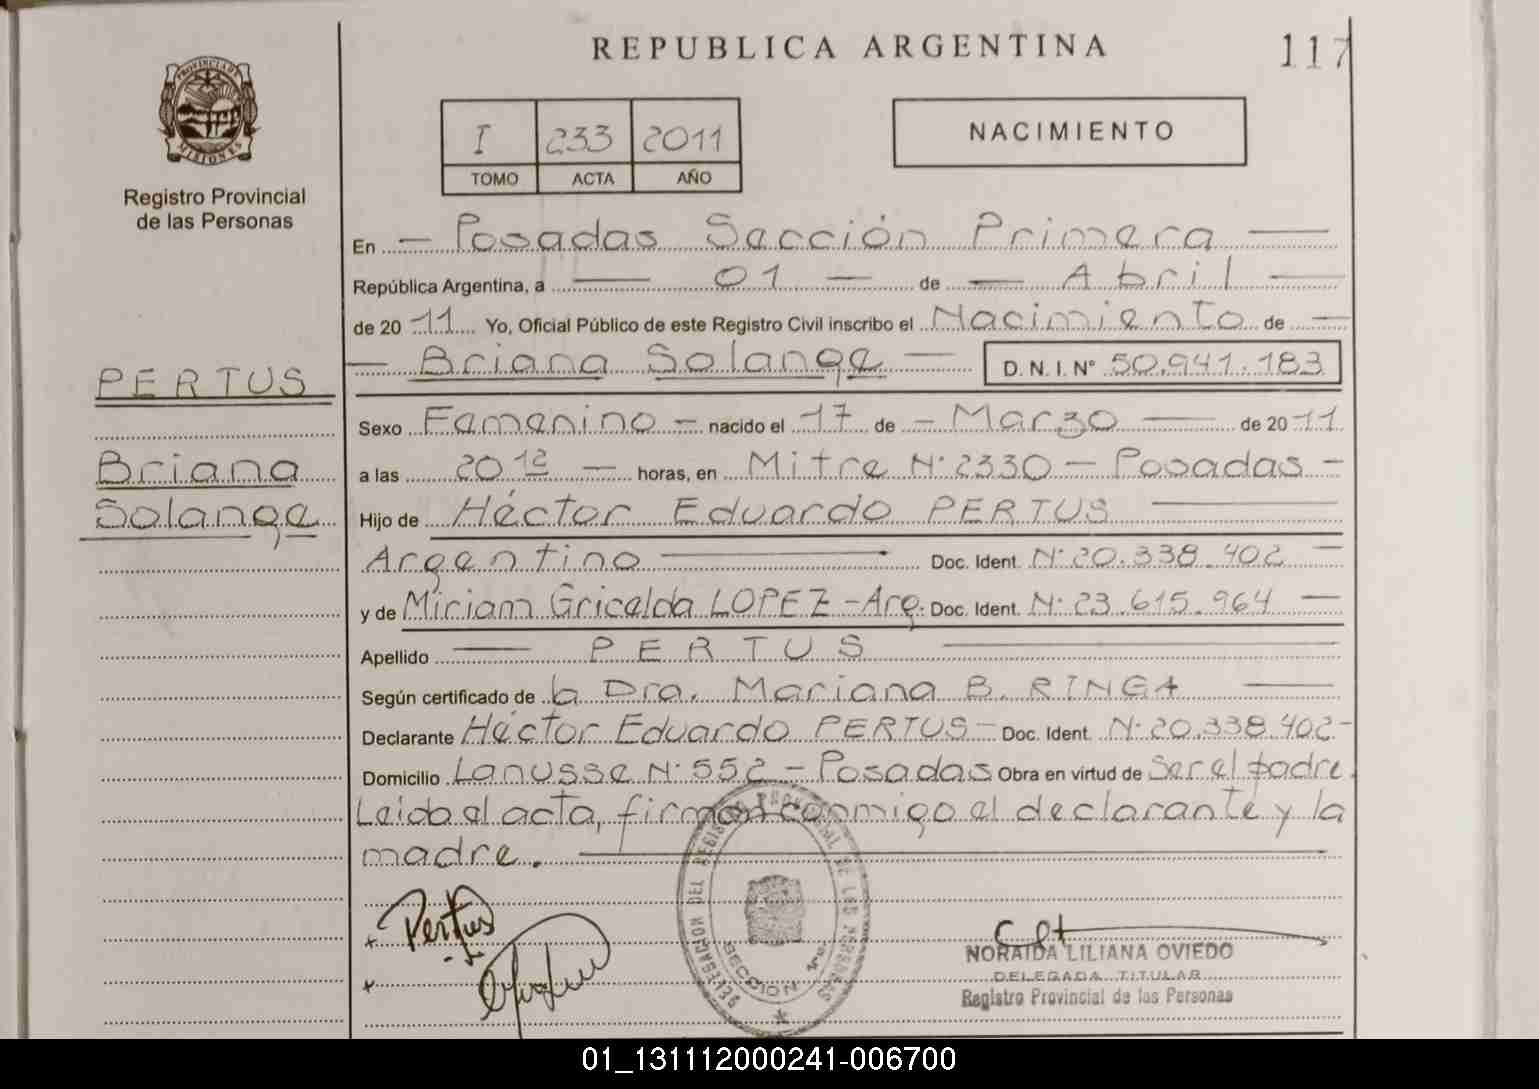 REPUBLICA ARGENTINA
117
PROVINCIA DE
MISIONES
Registro Provincial
de las Personas
I 233 2011
TOMO ACTA AÑO
NACIMIENTO
En — Posadas Sección Primera —
República Argentina, a — 01 — de — Abril —
de 20 11 Yo, Oficial Público de este Registro Civil inscribo el Nacimiento de —
— Briana Solange — D.N.I. Nº 50.941.183
PERTUS
Briana
Solange
Sexo Femenino — nacido el 17 de — Marzo — de 20 11
a las 20 12 — horas, en Mitre Nº 2330 — Posadas —
Hijo de Héctor Eduardo PERTUS —
Argentino — Doc. Ident. Nº 20.338.402 —
y de Miriam Gricelda LOPEZ - Arg. Doc. Ident. Nº 23.615.964 —
Apellido — PERTUS —
Según certificado de la Dra. Mariana B. RINGA —
Declarante Héctor Eduardo PERTUS — Doc. Ident. Nº 20.338.402 -
Domicilio Lanusse Nº 552 — Posadas Obra en virtud de Ser el padre.
Leida el acta, firman conmigo el declarante y la
madre. —
Pertus
DELEGACION DEL REGISTRO PROVINCIAL DE LAS PERSONAS
SECCION 1ra.
NORAIDA LILIANA OVIEDO
DELEGADA TITULAR
Registro Provincial de las Personas
01_131112000241-006700